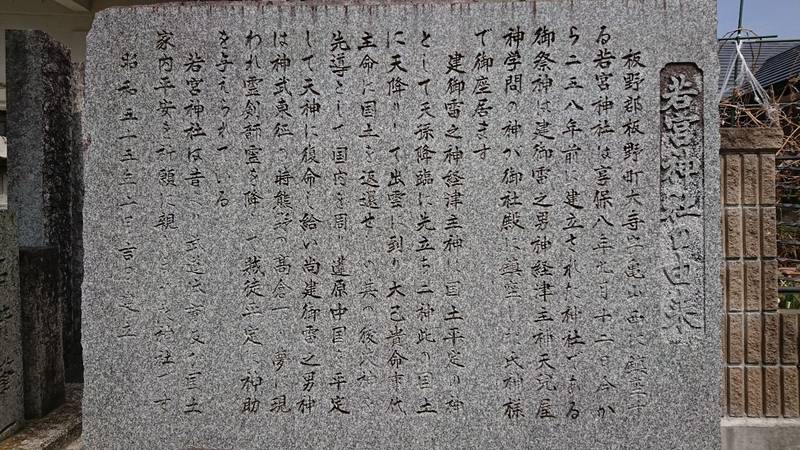 若宮神社の由来
板野郡板野町大寺字亀山西に鎮座す
る若宮神社は享保八年九月十二日今か
ら二五八年前に建立された神社である
御祭神は建御雷之男神経津主神天児屋
神学問の神が御社殿に鎮座 氏神様
で御座居ます
建御雷之神経津主神は国土平定の神
として天孫降臨に先立ち二神此の国土
に天降りして出雲に到り大己貴命事代
主命に国土を返還せ 其の後 神
先導として国内を周り葦原中国を平定
して天神に復命し給い尚建御雷之男神
は神武東征の時熊野の高倉 夢に現
われ霊剣 霊を降 賊徒平定に神助
を与えられている
若宮神社は昔より武道 国土
家内平安を祈願に親 神社です
昭和五十五年 吉日 之立